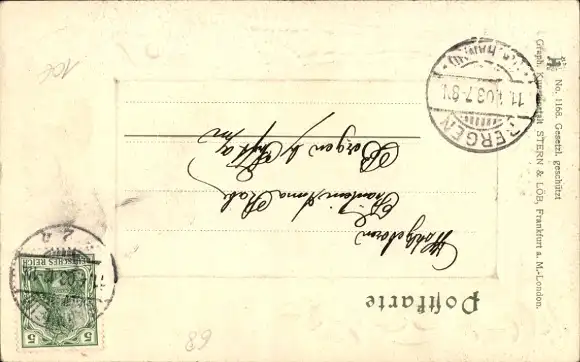 Postkarte
Wohlgeboren
Fräulein Anna
Bergen b/
No. 1168. Gesetzl. geschützt
Graph. Kunstanstalt STERN & LÖB, Frankfurt a. M.-London.
BERGEN
11. 03. 7-8
DEUTSCHES REICH
5 5
106
68